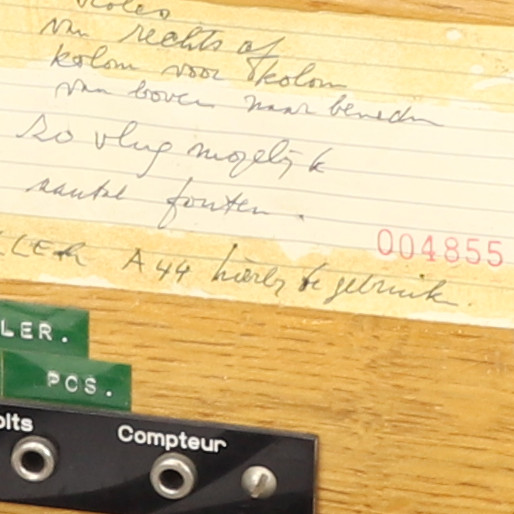 van rechts af
kolom voor kolom
van boven naar beneden
zo vlug mogelijk
aantal fouten.
004855
LLER A44 hierbij te gebruik.
LER.
PCS.
olts
Compteur